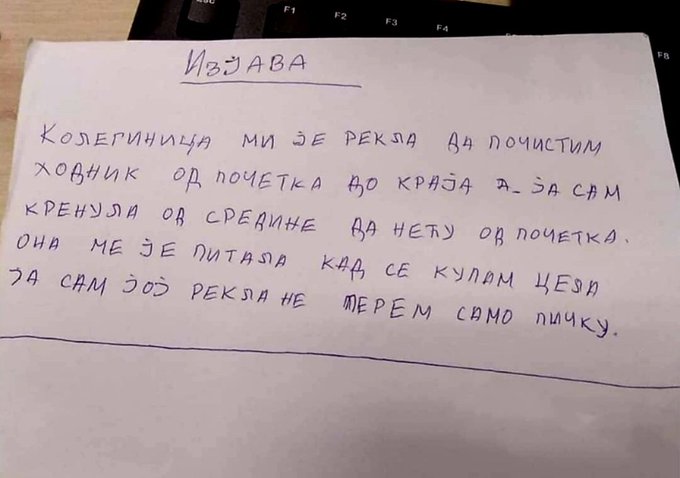 F1 F2 F3 F4 F8
ИЗЈАВА
КОЛЕГИНИЦА МИ ЈЕ РЕКЛА ДА ПОЧИСТИМ
ХОДНИК ОД ПОЧЕТКА ДО КРАЈА А-ЈА САМ
КРЕНУЛА ОД СРЕДИНЕ ДА НЕЋУ ОД ПОЧЕТКА.
ОНА МЕ ЈЕ ПИТАЛА КАД СЕ КУПАМ ЦЕЛА
ЈА САМ ЈОЈ РЕКЛА НЕ ПЕРЕМ САМО ПИЧКУ.